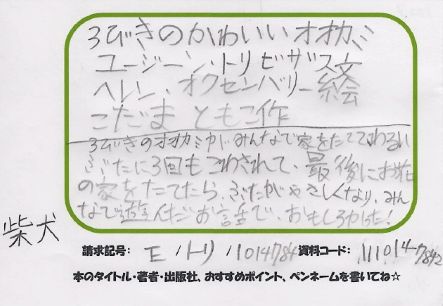 3びきのかわいいオオカミ
ユージーン・トリビザス文
ヘレン、オクセンバリー絵
こだま ともこ作
3びきのオオカミが、みんなで家をたててわるい
ぶたに3回もこわされて、最後にお花
の家をたてたら、ぶたがやさしくなり、みん
なで遊んだお話で、おもしろかった!
柴犬
請求記号: E /トリ /1014784 資料コード:
本のタイトル・著者・出版社、おすすめポイント、ペンネームを書いてね☆